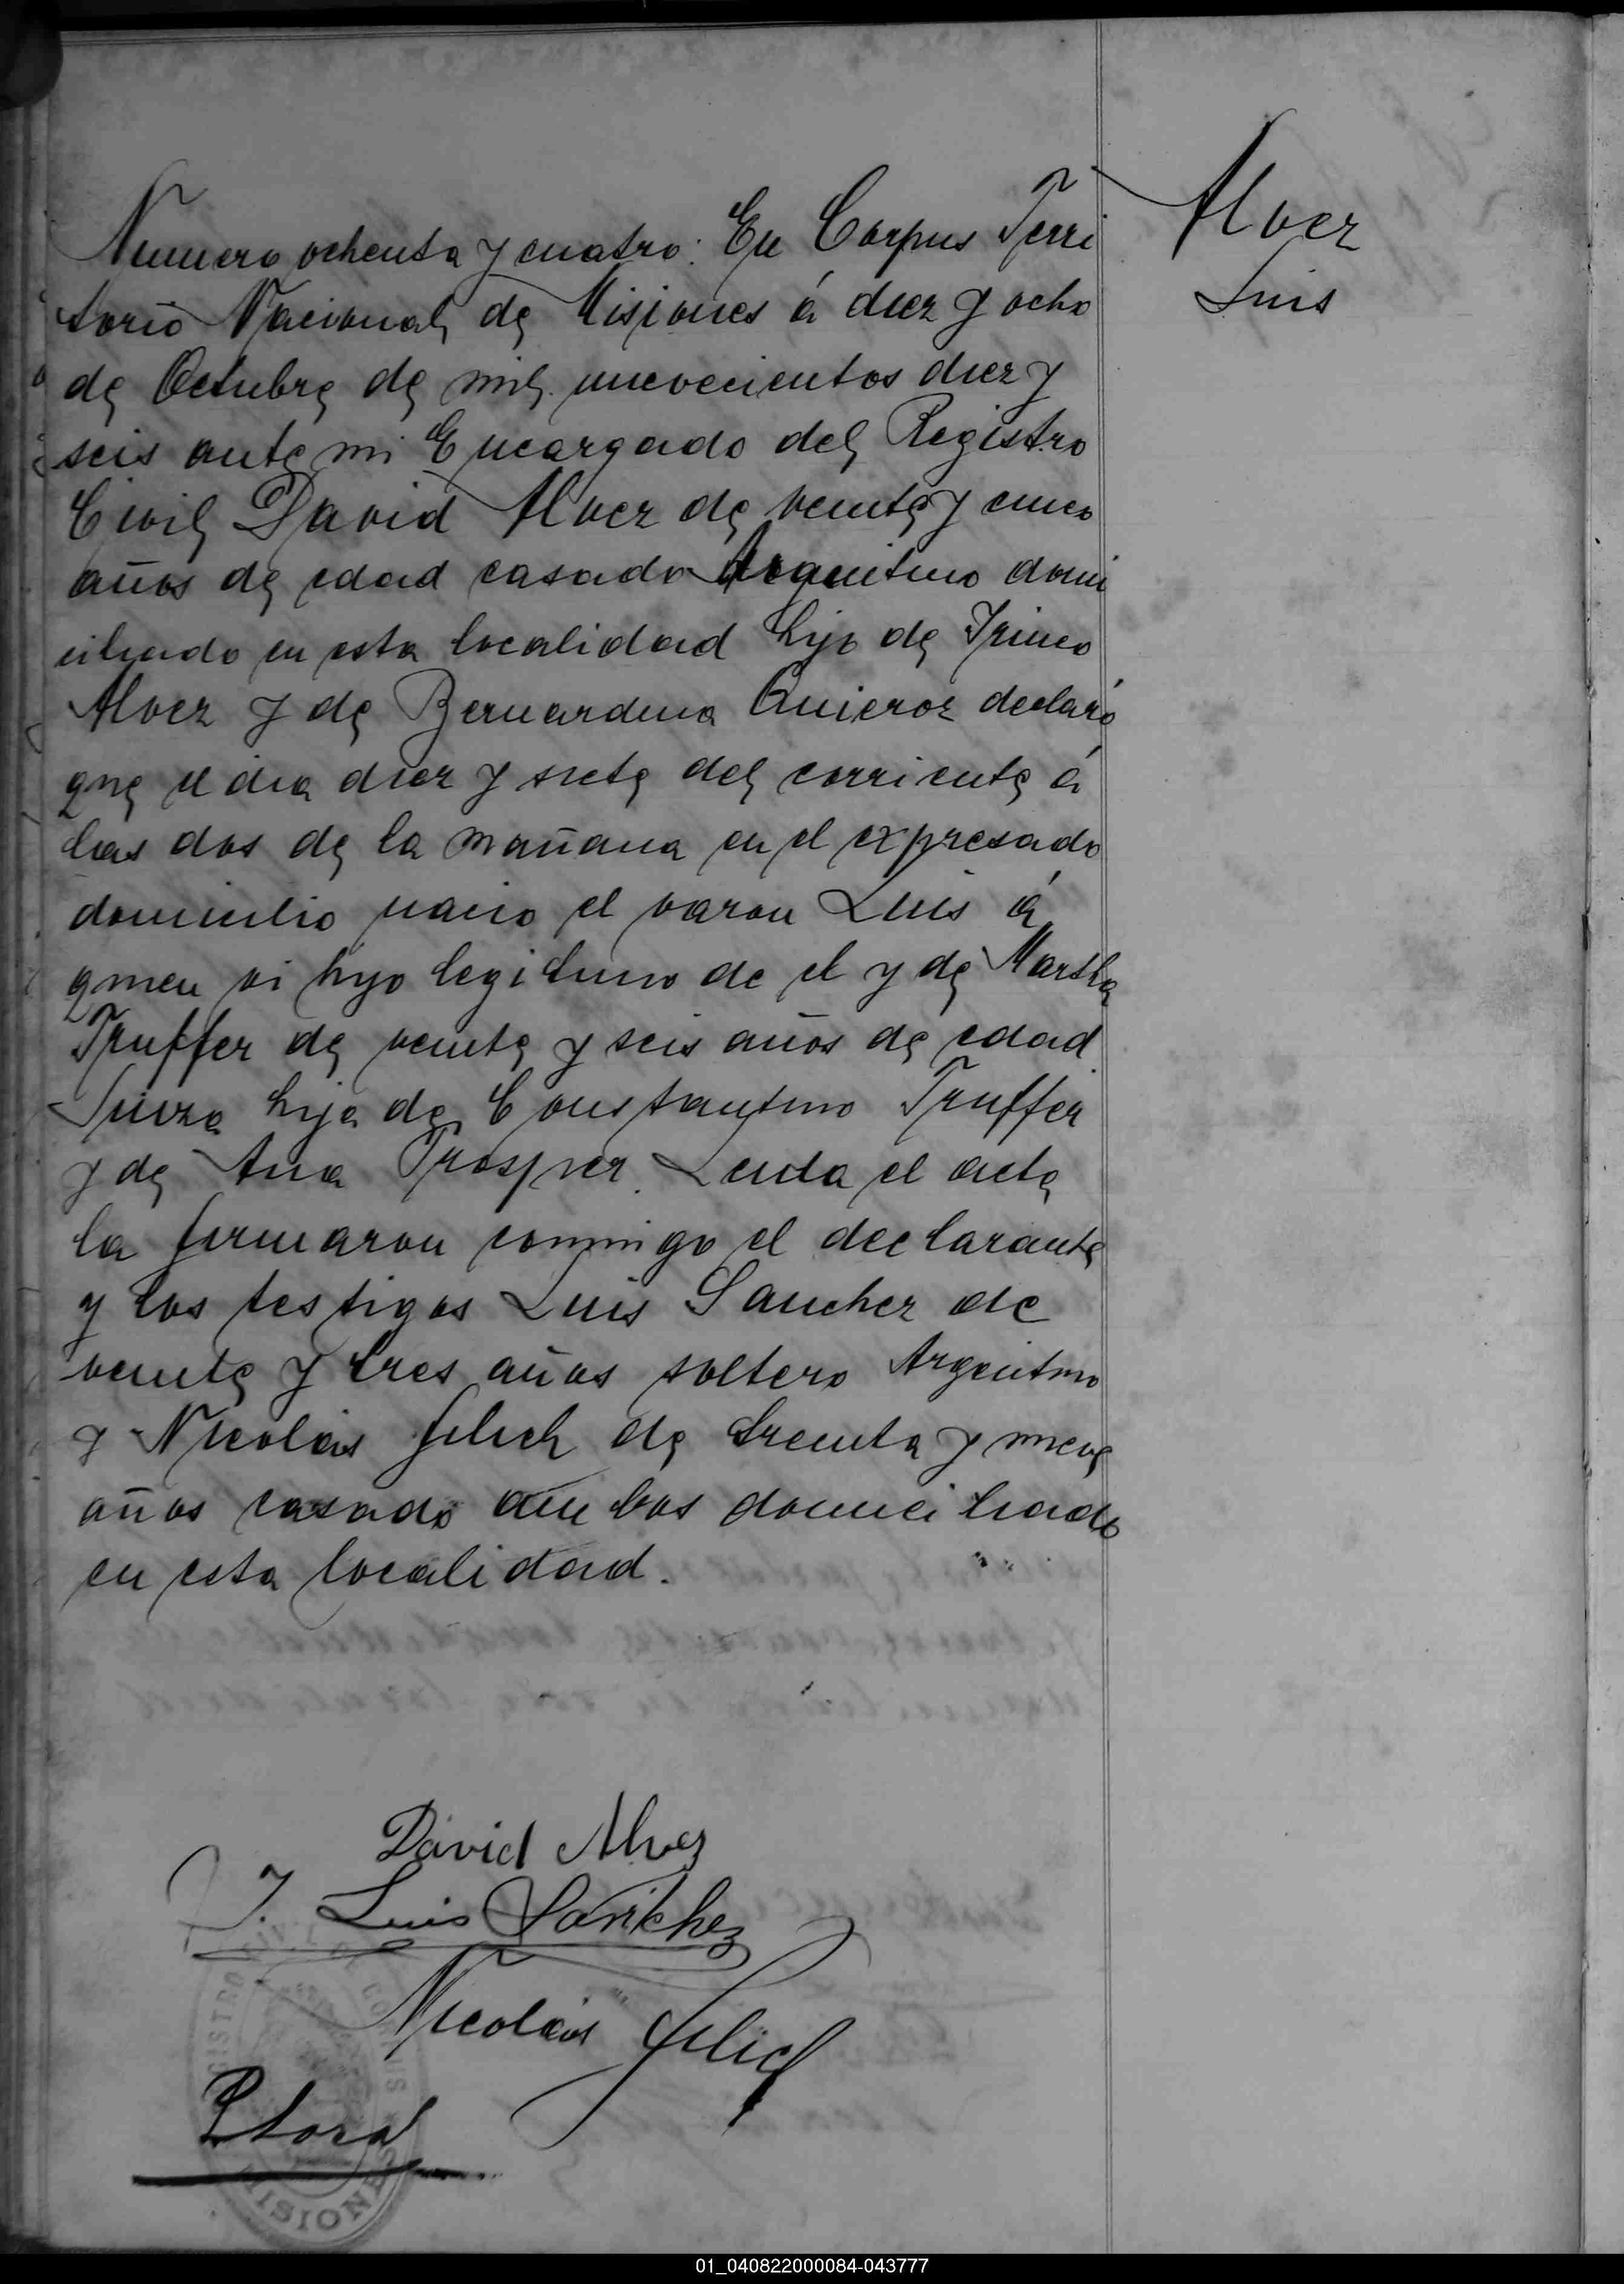 Alvez
Luis
Numero ochenta y cuatro: En Corpus Terri
torio Nacional de Misiones á diez y ocho
de Octubre de mil nuevecientos diez y
seis ante mi Encargado del Registro
Civil David Alvez de veinte y cinco
años de edad casado Argentino domi
ciliado en esta localidad hijo de
Alvez y de Bernardina Quieroz declaró
que el dia diez y siete del corriente á
las dos de la mañana en el expresado
domicilio nacio el varon Luis á
quien vi hijo legitimo de el y de Martha
Truffer de veinte y seis años de edad
Suiza hija de Constantino Truffer
y de Ana Prosper. Leida el acta
la firmaron conmigo el declarante
y los testigos Luis Sanchez de
veinte y tres años soltero Argentino
y Nicolás de treinta y nueve
años casado ambos domiciliado
en esta localidad.
David Alvez
T. Luis Sanchez
Nicolás
REGISTRO CIVIL CORPUS
MISIONES
01_040822000084-043777